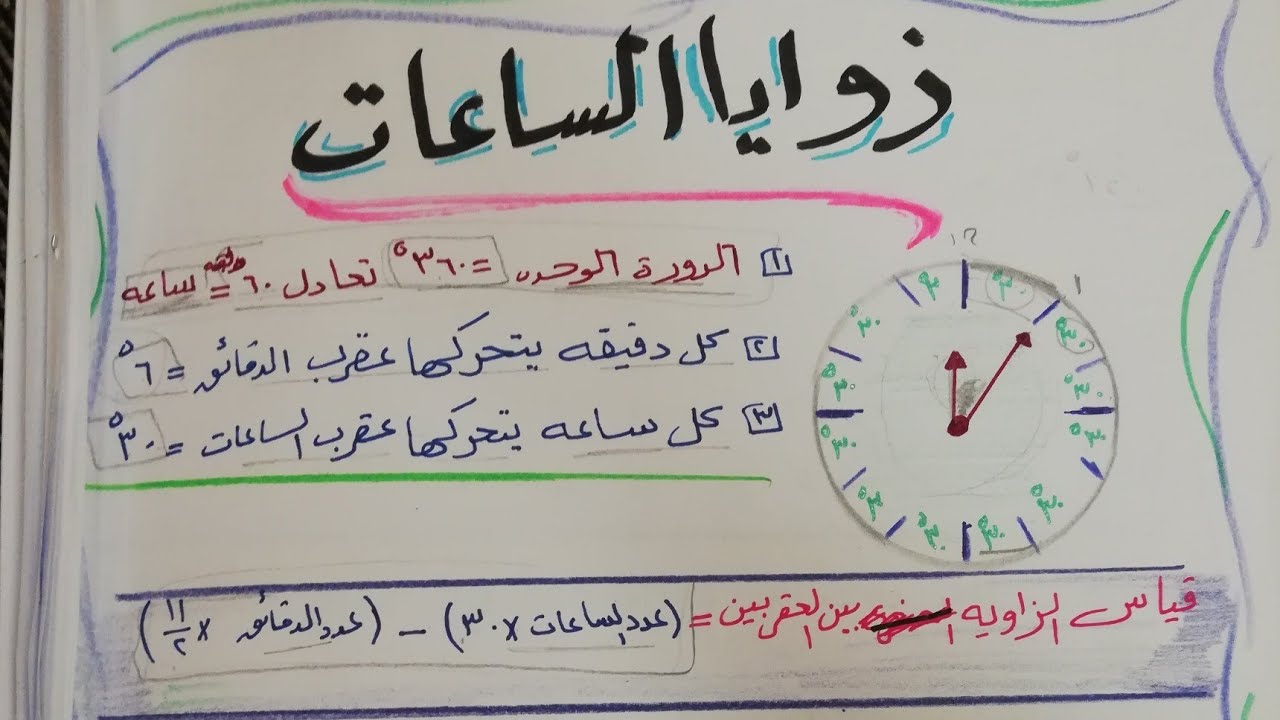 زوايا الساعات
١ الدورة الوحده = ٣٦٠° تعادل ٦٠ دقيقه = ساعه
٢ كل دقيقه يتحركها عقرب الدقائق = ٦°
٣ كل ساعه يتحركها عقرب الساعات = ٣٠°
١٢
١
٣٠
٣٠°
٣٠°
٣٠°
٣٠°
٣٠°
٣٠°
٣٠°
٣٠°
٣٠°
٣٠°
٣٠
قياس الزاويه بين العقربين = (عدد الساعات × ٣٠) − (عدد الدقائق × ١١/٢)